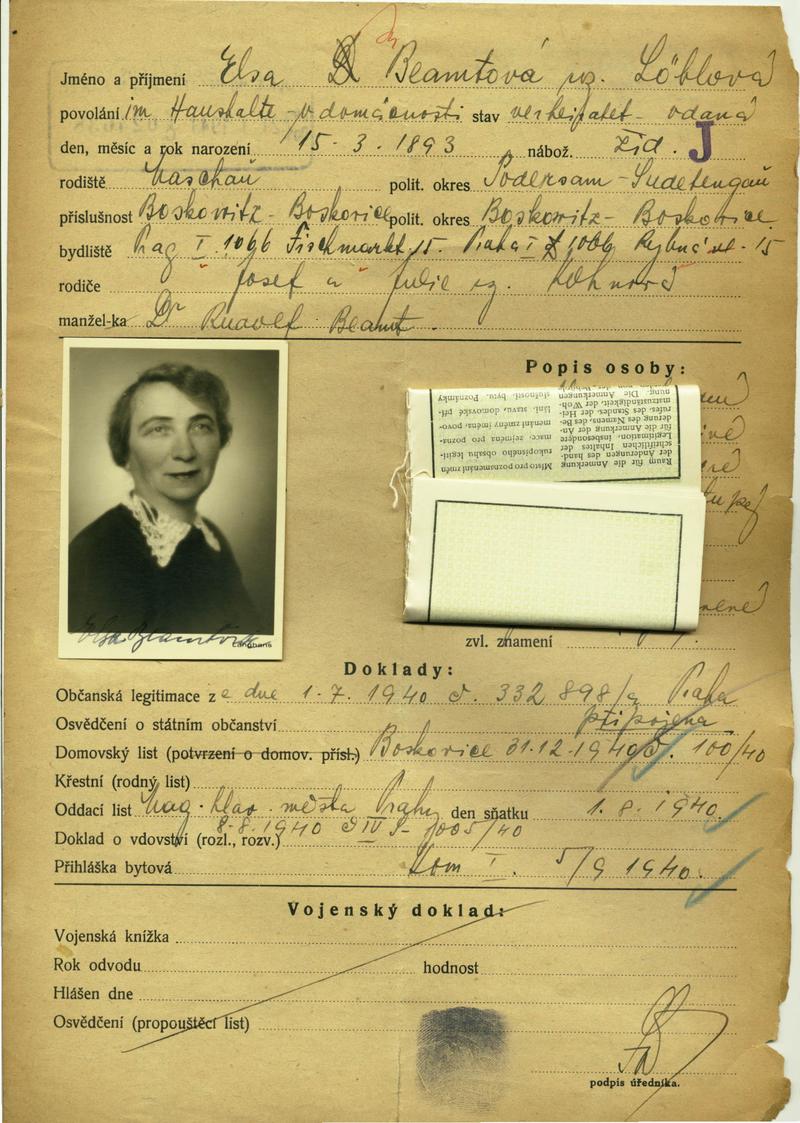 Jméno a příjmení Elsa Beamtová roz. Löblová
povolání im Haushalte - v domácnosti stav verheiratet - vdaná
den, měsíc a rok narození 15 - 3 - 1893 nábož. žid. J
rodiště Waschau polit. okres Podersam - Sudetengau
příslušnost Boskowitz - Boskovice polit. okres Boskowitz - Boskovice
bydliště Prag I. 1066 Fischmarkt 15. Praha I 1066 Rybná ul. 15
rodiče Josef a Julie roz.
manžel-ka Dr Rudolf Beamt.
Popis osoby:
Raum für die Anmerkung
der Änderungen des hand-
schriftlichen Inhaltes der
Legitimation, insbesondere
für die Anmerkung der Än-
derung des Namens, des Be-
rufes, des Standes, der Hei-
matzuständigkeit, der Woh-
nung. Die Anmerkungen
Místo pro poznamenání změn
rukopisného obsahu legiti-
mace, zejména pro pozna-
menání změny jména, povo-
lání, stavu, domovské pří-
slušnosti, bytu. Poznámky
zvl. znamení
Elsa Beamtová
Langhans
Doklady:
Občanská legitimace z e dne 1. 7. 1940 č. 332 898/a Praha
připojena
Osvědčení o státním občanství
Domovský list (potvrzení o domov. přísl.) Boskovice 31.12.1940 č. 100/40
Křestní (rodný list)
Oddací list Mag. hlav. města Prahy den sňatku 1. 8. 1940.
8. 8. 1940 č IV
Doklad o vdovství (rozl., rozv.)
Přihláška bytová kom I. 5/9 1940.
Vojenský doklad:
Vojenská knížka
Rok odvodu hodnost
Hlášen dne
Osvědčení (propouštěcí list)
podpis úředníka.